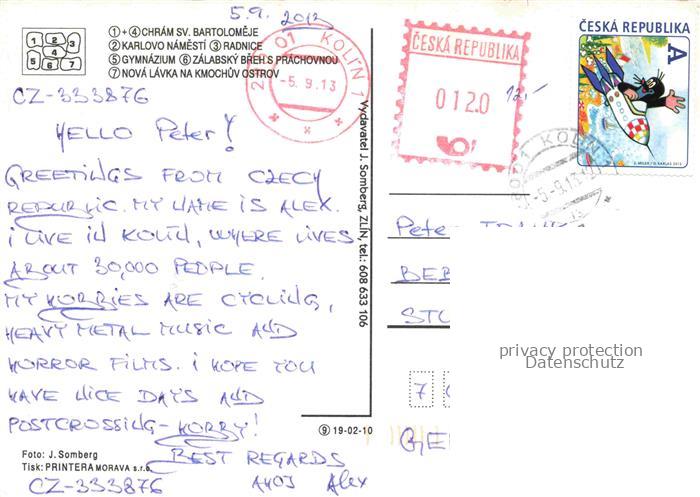 5.9. 2013
①+④ CHRÁM SV. BARTOLOMĚJE
② KARLOVO NÁMĚSTÍ ③ RADNICE
⑤ GYMNÁZIUM ⑥ ZÁLABSKÝ BŘEH S PRÁCHOVNOU
⑦ NOVÁ LÁVKA NA KMOCHŮV OSTROV
CZ-333876
HELLO Peter!
GREETINGS FROM CZECH
REPUBLIC. MY NAME IS ALEX.
I LIVE IN KOLÍN, WHERE LIVES
ABOUT 30,000 PEOPLE.
MY HOBBIES ARE CYCLING,
HEAVY METAL MUSIC AND
HORROR FILMS. I HOPE YOU
HAVE NICE DAYS AND
POSTCROSSING-HOBBY!
BEST REGARDS
AHOJ Alex
CZ-333876
Foto: J. Somberg
Tisk: PRINTERA MORAVA s.r.o.
Vydavatel J. Somberg, ZLÍN, tel.: 608 633 106
⑨ 19-02-10
KOLÍN 1
-5.9.13
ČESKÁ REPUBLIKA
0120
12,-
ČESKÁ REPUBLIKA
A
KOLÍN
-5.-9.13
Pete
BEB
STU
7
GE
privacy protection
Datenschutz